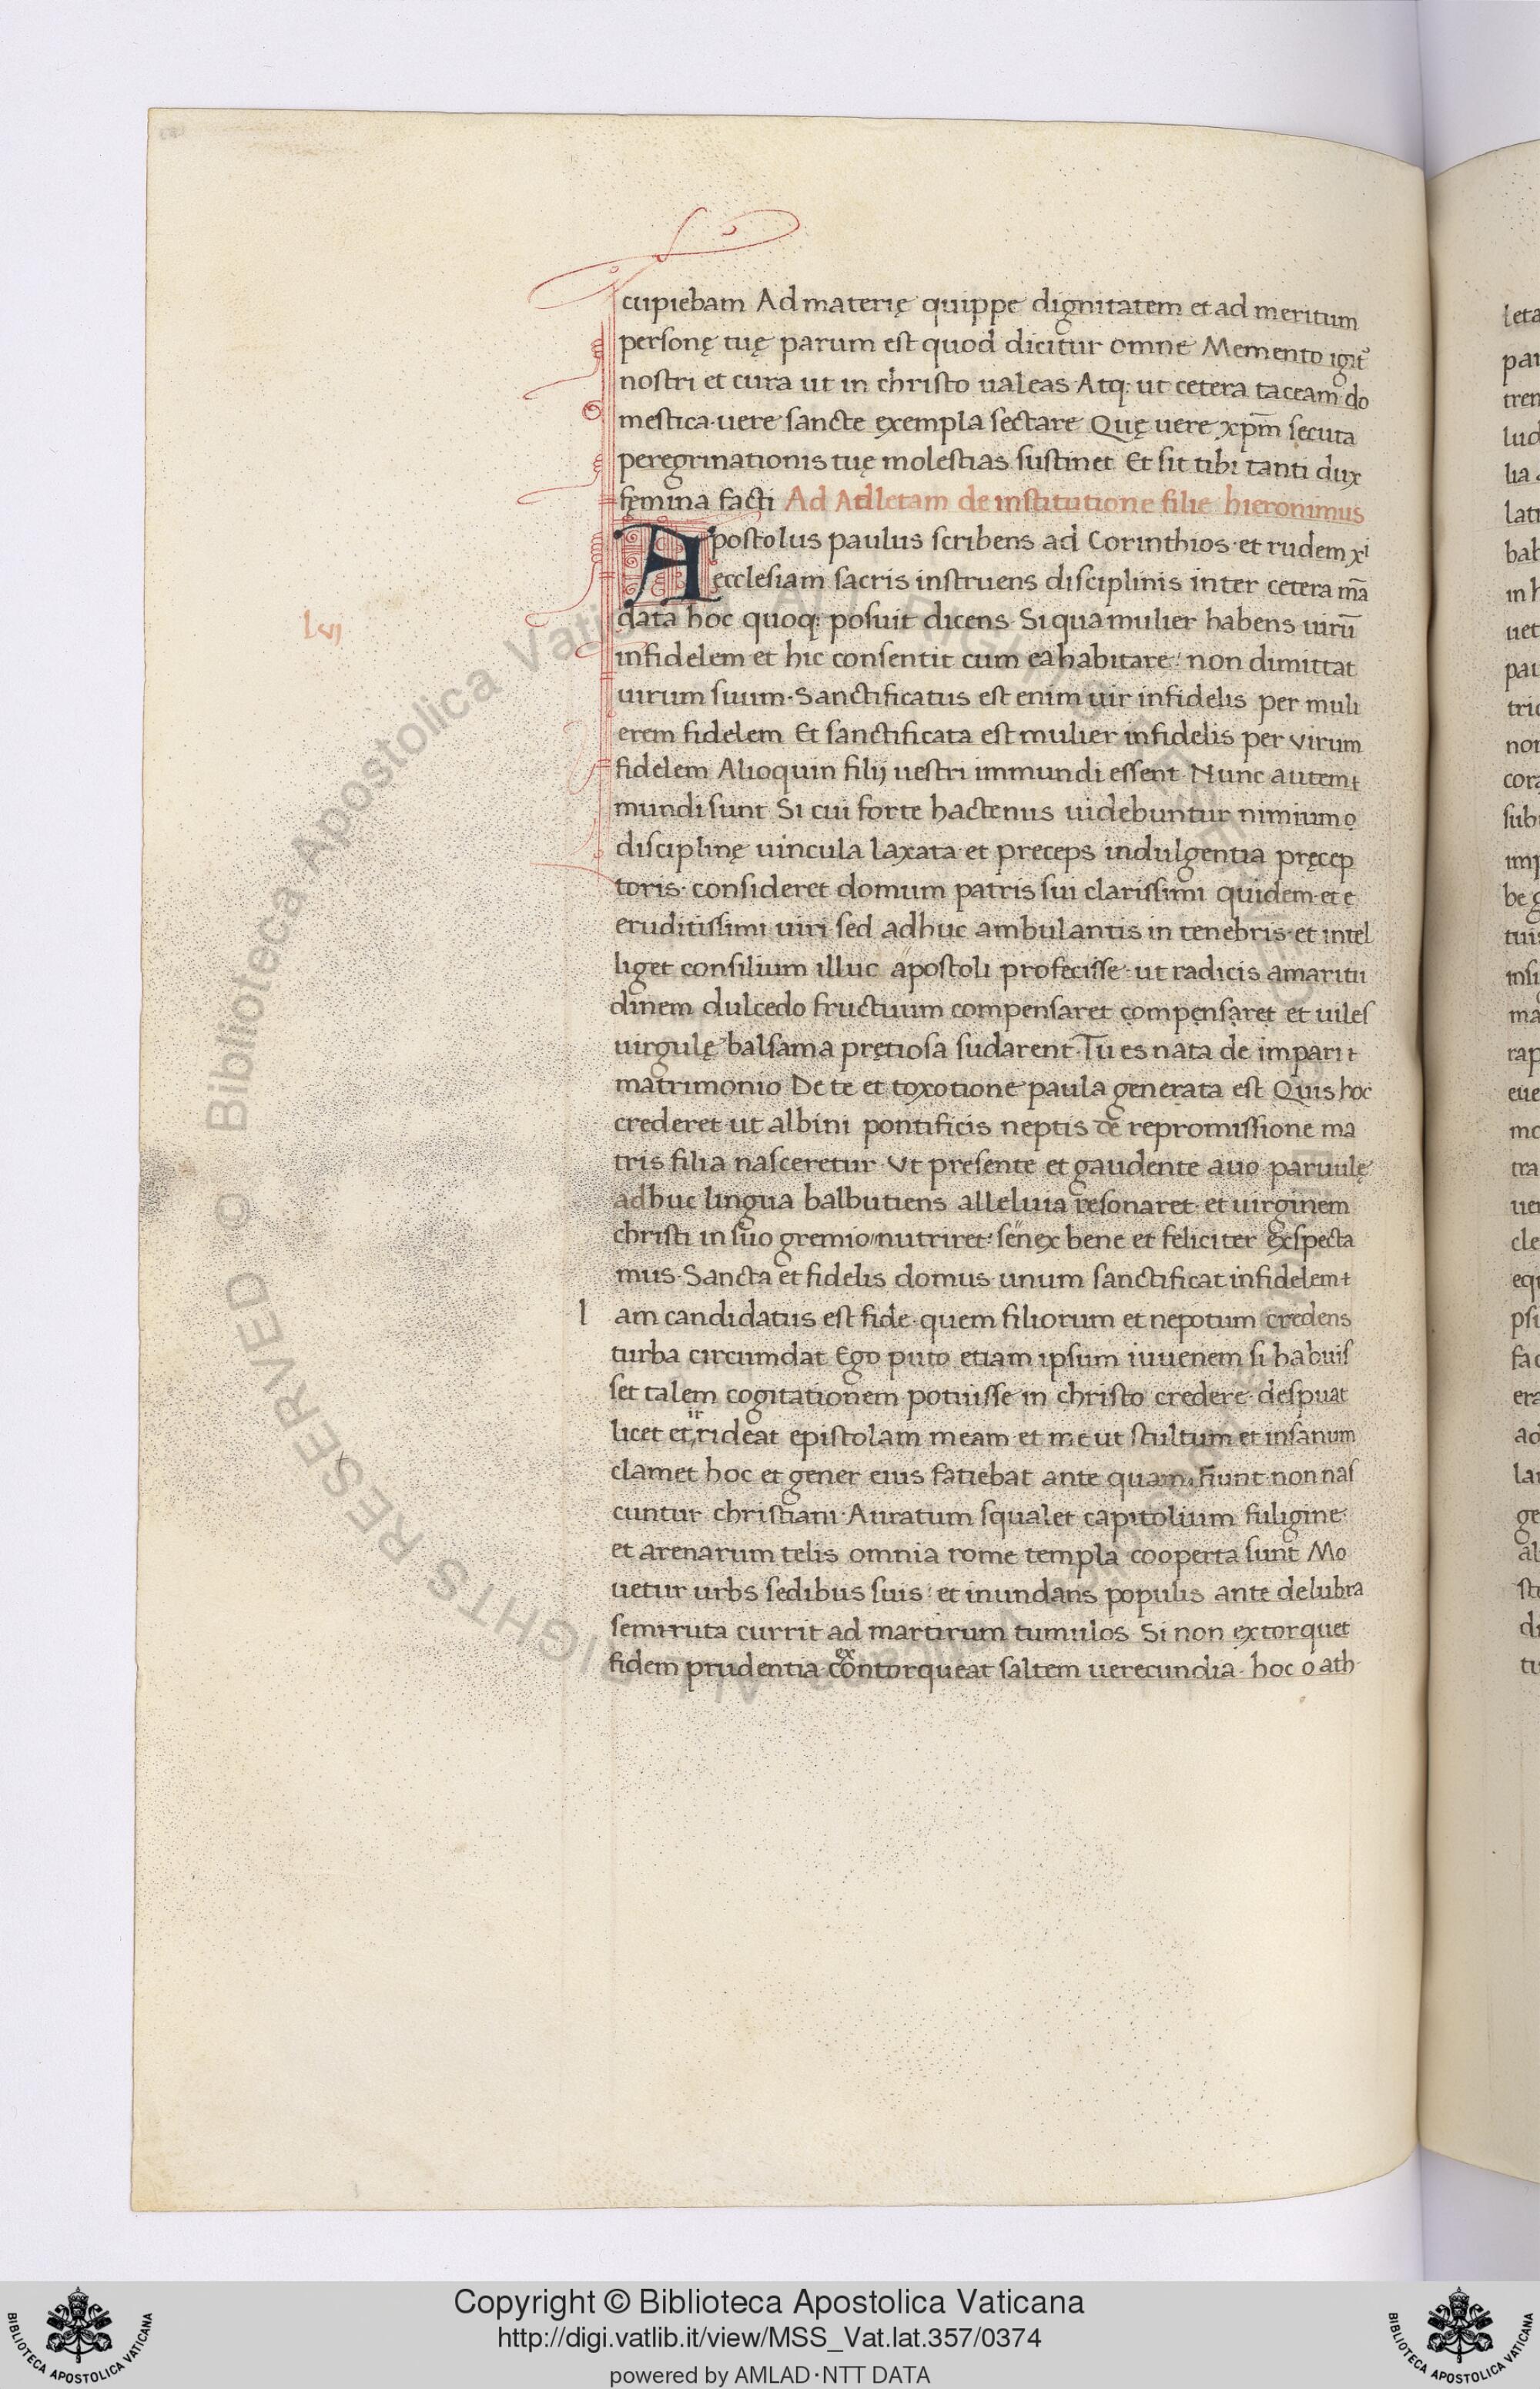 cupiebam Ad materię quippe dignitatem et ad meritum
personę tuę parum est quod dicitur omne Memento igit᷑
nostri et cura ut in christo ualeas Atq: ut cetera taceam do
mestica·uere sancte exempla sectare Quę uere xp̄m secuta
peregrinationis tuę molestias sustinet Et sit tibi tanti dux
fęmina facti Ad Adletam de institutione filie hieronimus
Apostolus paulus scribens ad Corinthios·et rudem xi
ecclesiam sacris instruens disciplinis inter cetera mā
lvij
data hoc quoq: posuit dicens Si qua mulier habens uirū
infidelem et hic consentit cum ea habitare: non dimittat
uirum suum·Sanctificatus est enim uir infidelis per muli
erem fidelem Et sanctificata est mulier infidelis per virum
fidelem Alioquin filij uestri immundi essent·Nunc autem t
mundi sunt Si cui forte hactenus uidebuntur nimium o
disciplinę uincula laxata et preceps indulgentia pręcep
toris· consideret domum patris sui clarissimi quidem·et e
eruditissimi uiri sed adhuc ambulantis in tenebris·et intel
liget consilium illuc apostoli profecisse·ut radicis amaritu
dinem dulcedo fructuum compensaret compensaret et uiles
uirgulę balsama pretiosa sudarent·Tu es nata de impari t
matrimonio De te et toxotione paula generata est Quis hoc
crederet·ut albini pontificis neptis de repromissione ma
tris filia nasceretur·Vt presente et gaudente auo paruulę
adhuc lingua balbutiens alleluia resonaret·et uirginem
christi in suo gremio nutriret: senex bene et feliciter exspecta
mus·Sancta et fidelis domus·unum sanctificat infidelem t
I am candidatus est fide·quem filiorum et nepotum credens
turba circumdat Ego puto etiam ipsum iuuenem si habuis
set talem cogitationem potuisse in christo credere·despuat
licet et irrideat epistolam meam et me ut stultum et insanum
clamet hoc et gener eius fatiebat ante quam fiunt non nas
cuntur christiani·Auratum squalet capitolium fuligine:
et arenarum telis omnia rome templa cooperta sunt Mo
uetur urbs sedibus suis: et inundans populis ante delubra
semiruta currit ad martirum tumulos Si non extorquet
ex
fidem prudentia·contorqueat saltem uerecundia· hoc o ath·
© Biblioteca Apostolica Vaticana ALL RIGHTS RESERVED
Copyright © Biblioteca Apostolica Vaticana
http://digi.vatlib.it/view/MSS_Vat.lat.357/0374
powered by AMLAD·NTT DATA
BIBLIOTECA APOSTOLICA VATICANA
BIBLIOTECA APOSTOLICA VATICANA